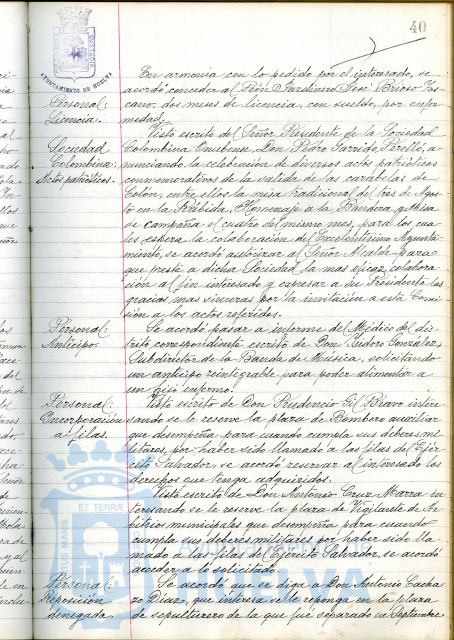 40
AYUNTAMIENTO DE HUELVA
En armonía con lo pedido por el interesado, se
acordó conceder al Peón Jardinero José Brioso
cano, dos meses de licencia, con sueldo, por enfer
medad.
Personal:
Licencia.
Visto escrito del Señor Presidente de la Sociedad
Colombina Onubense, Don Pedro Garrido Perelló, a-
nunciando la celebración de diversos actos patrióticos
conmemorativos de la salida de las carabelas de
Colón, entre ellos la misa tradicional del tres de Agos
to en la Rábida, Homenaje a la Bandera y
de campaña el cuatro del mismo mes, para los cua
les espera la colaboración del Excelentísimo Ayunta
miento, se acordó autorizar al Señor Alcalde para
que preste a dicha Sociedad la mas eficaz colabora
ción al fin interesado y expresar a su Presidente las
gracias mas sinceras por la invitación a esta Comi
sión a los actos referidos.
Sociedad
Colombina:
Actos patrióticos.
Se acordó pasar a informe del Médico del dis-
trito correspondiente escrito de Don Isidoro González,
Subdirector de la Banda de Música, solicitando
un anticipo reintegrable para poder alimentar a
un hijo enfermo.
Personal:
Anticipo
Visto escrito de Don Prudencio Gil Bravo intere
sando se le reserve la plaza de Bombero auxiliar
que desempeña para cuando cumpla sus deberes mi
litares, por haber sido llamado a las filas del Ejér
cito Salvador, se acordó reservar al interesado los
derechos que tenga adquiridos.
Personal:
Incorporación
a filas.
Visto escrito de Don Antonio Cruz Marra in
teresando se le reserve la plaza de Vigilante de Ar
bitrios municipales que desempeña para cuando
cumpla sus deberes militares por haber sido lla
mado a las filas del Ejército Salvador, se acordó
acceder a lo solicitado.
Se acordó que se diga a Don Antonio
zo Díaz, que interesa se le reponga en la plaza
de sepulturero de la que fué separado en Septiembre
Personal:
Reposición
denegada.
ET TERRÆ